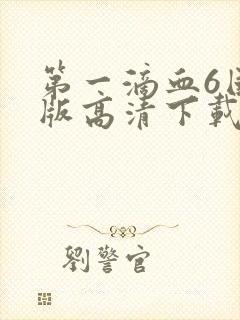 第一滴血6
版高清下載
劉警官